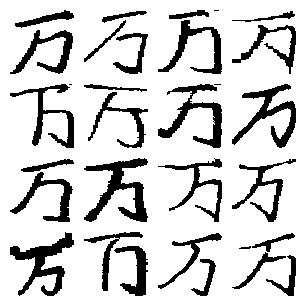 万万万万
万万万万
万万万万
万万万万